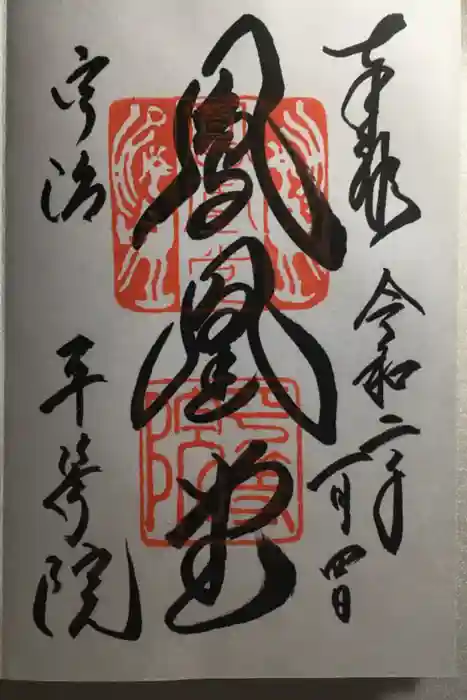 奉拝 令和二年
一月四日
鳳凰堂
宇治 平等院